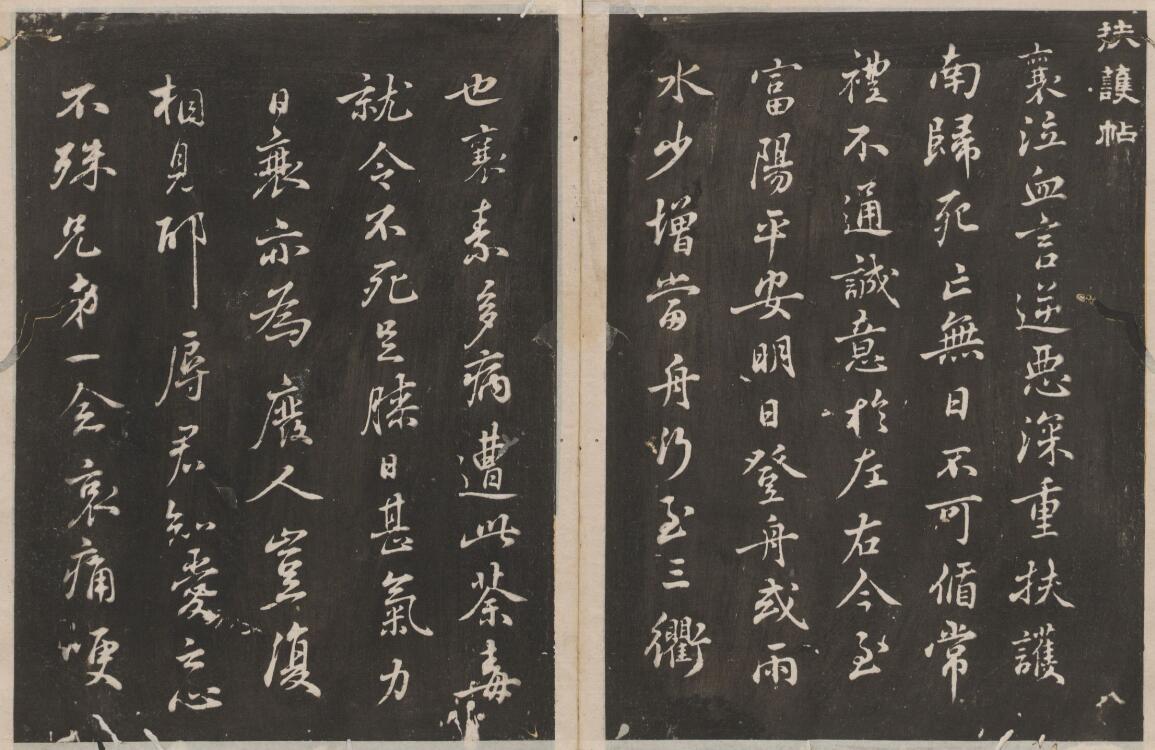 扶護帖
襄泣血言逆惡深重扶護
南歸死亡無日不可循常
禮不通誠意於左右今至
富陽平安明日登舟或雨
水少增當舟行至三衢
也襄素多病遭此荼毒
就令不死足膝日甚氣力
日衰亦為廢人豈復
相見耶辱君知愛之心
不殊兄弟一念哀痛哽